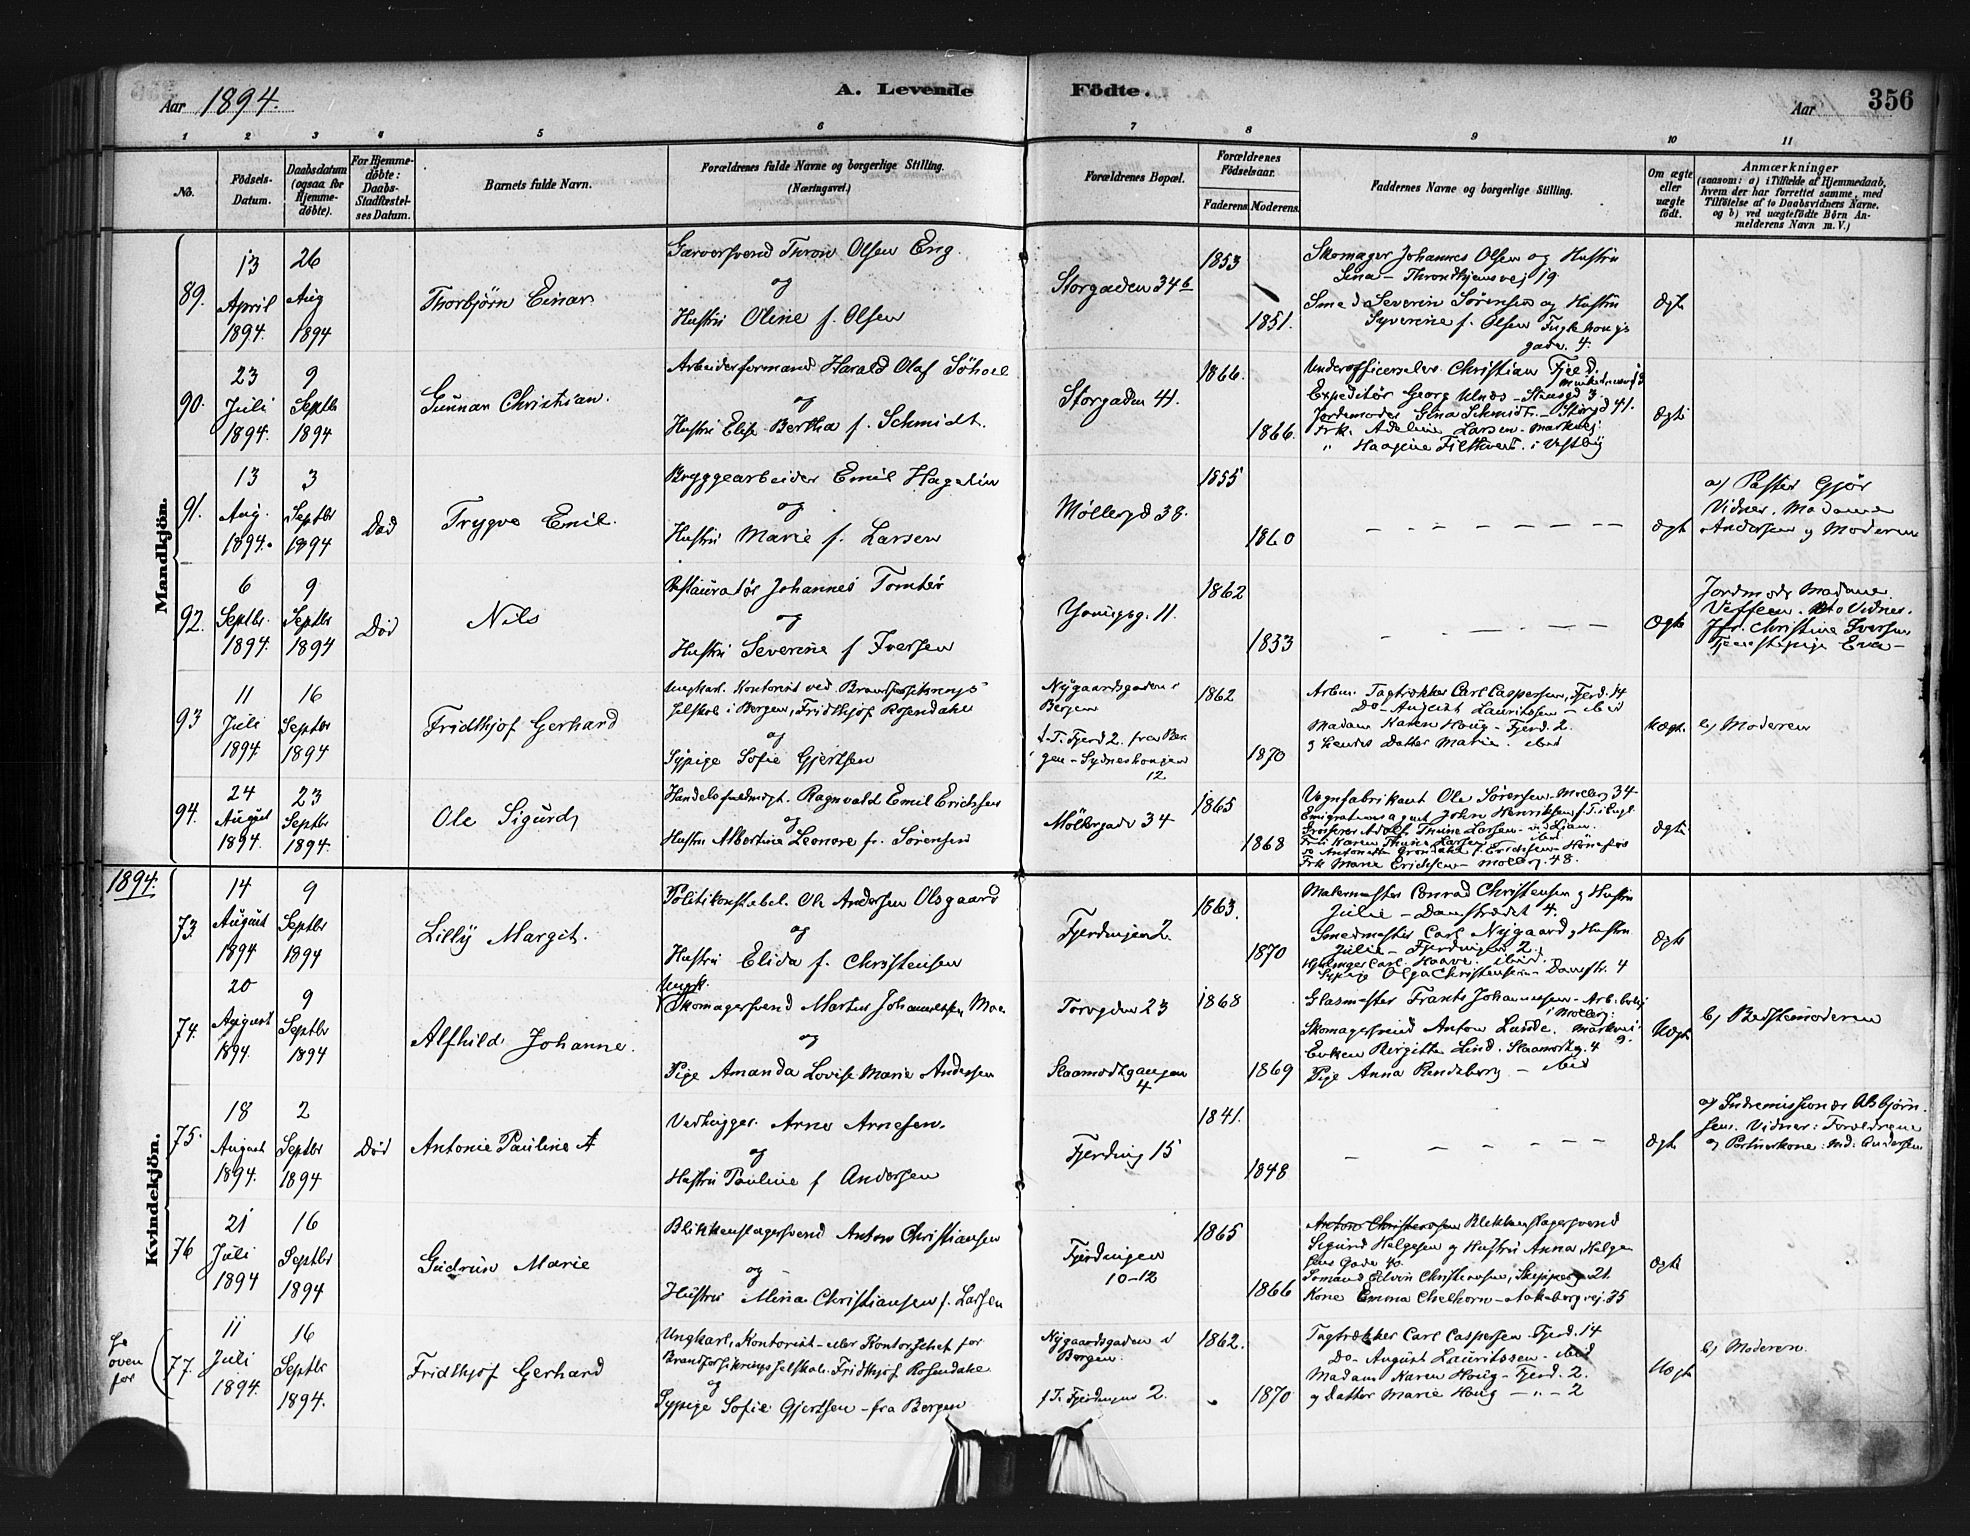 Aar 1894.
A. Levende Födte.
Aar
356
1 2 3 4 5 6 7 8 9 10 11
No.
Födsels-Datum.
Daabsdatum (ogsaa for Hjemmedöbte).
For Hjemmedöbte: Daabs-Stadfæstelses Datum.
Barnets fulde Navn.
Forældrenes fulde Navne og borgerlige Stilling. (Næringsvei.)
Forældrenes Bopæl.
Forældrenes Födselsaar.
Faderens. Moderens.
Faddernes Navne og borgerlige Stilling.
Om ægte eller uægte født.
Anmærkninger
(saasom: a) i Tilfælde af Hjemmedaab,
hvem der har forrettet samme, med
Tilföielse af to Daabsvidners Navne.
og b) ved uægtefödte Börn Anmelderens Navn m. V.)
Mandkjön.
89.
13 April 1894.
26 Aug 1894
Thorbjörn Einar
Garversvend Thron Olsen Eng.
og
Hustru Oline f. Olsen
Storgaden 34 b
1853
1851.
Skomager Johannes Olsen og Hustru
Lina – Throndhjemsvej 19
Smed Severin Sörensen og Hustru
Syverine f. Olsen
gade. 4.
Ægte
90.
23 Juli 1894.
9 Septbr 1894
Gunnar Christian.
Arbeiderformand Harald Olaf Söhoel
og
Hustru Elise Bertha f. Schmidt.
Storgaden 41.
1866.
1866.
Underofficerselev Christian Fjeld.
Expeditör Georg
Jordemoder Gina Schmidt – Storgd 41.
Frk. Adeline Larsen
i Vestby
Ægte
91.
13 Aug. 1894.
3 Septbr 1894
Död
Trygve Emil.
Bryggearbeider Emil Hagelin
og
Hustru Marie f. Larsen
Möllergd 38.
1855
1860
– – – – – – –
Ægte
a) Pastor Gjör
Vidner. Madame
Andersen og Moderen
92.
6 Septbr. 1894.
9 Septbr 1894
Död
Nils
Restauratör Johannes Tomter
og
Hustru Severine f Iversen
Youngsg. 11.
1862
1853
– – – – – –
Ægte
Jordmoder Madame
Vidner.
Christine Iversen
Tjenestepige Eva –
93
11 Juli 1894.
16 Septbr 1894
Fridthjof Gerhard
Ungkarl. Kontorist ved Brandforsikrings
selskab i Bergen, Fridthjof Rosendahl
og
Sypige Sofie Gjertsen
Nygaardsgaden i
Bergen
f. T. Fjerd 2. fra Ber
gen – Sydneshaugen
12
1862
1870
Arbm. Tagtrækker Carl Caspersen, Fjerd. 14
Do – August Lauritssen – ibid
Madam Karen Houg – Fjerd. 2.
og hendes Datter Marie. ibid
Uægte
b) Moderen
94.
24 August 1894.
23 Septbr 1894.
Ole Sigurd
Handelsfuldmægt. Ragnvald Emil Erichsen
og
Hustru Albertine Leonore f. Sörensen
Möllergade 34
1865
1868
Vognfabrikant Ole Sörensen – Möllerg 34
Emigrationsagent John Henriksen f. T. i Engl.
Grosserer Adolf Thune Larsen – ved Lian.
Fru Karen Thune Larsen ibid
Do Antonette Gröndahl f. Erichsen – Hönefos
Frk Marie Erichsen – Möllerg. 48.
Ægte
1894.
Kvindekjön.
73.
14 August 1894
9 Septbr 1894
Lilly Margit.
Politikonstabel. Ole Andersen Olsgaard
og
Hustru Elida f. Christensen
Fjerdingen 2.
1863.
1870
Malermester Conrad Christensen og Hustru
Julie – Damstrædet 4.
Smedmester Carl Nygaard og Hustru
Julie – Fjerdingen 2.
Carl Haave. ibid.
Sypige Olga Christensen – Damstr. 4
Ægte
74.
20 August 1894.
9 Septbr 1894
Alfhild Johanne.
Ungk.
Skomagersvend Martin Johannessen Moe
og
Pige Amanda Lovise Marie Andersen
Torvgden 23
Slaamodtgangen
4
1868
1869
Glasmester Frants Johannesen – Arb. bolig
i Möllerg.
Skomagersvend Anton Lunde. Markvei.
9.
Enken Birgitte Lind. Slaamodtg. 4
Pige Anna – ibid
Uægte
b) Bedstemoderen
75.
18 August 1894.
2 Septbr 1894
Död
Antonie Pauline A
Vedhugger. Arne Arnesen.
og
Hustru Pauline f Andersen
Fjerding 15
1841.
1848
– – – – – –
Ægte
a) Indremissionær Asbjörn-
sen. Vidner: Forældrene
og Portnerkone: Md: Andersen
76
21 Juli 1894
16 Septbr 1894
Gudrun Marie
Blikkenslagersvend Anton Christiansen
og
Hustru Mina Christiansen f. Larsen
Fjerdingen
10–12
1865
1866
Anton Christensen Blikkenslagersvend
Sigurd Helgesen og Hustru Anna, Helge
sens Gade 40
Sömand Edvin Christensen, Skipperg. 21.
Kone Emma – Aakebergvej. 35
Ægte
Se oven for
77.
11 Juli 1894.
16 Septbr 1894.
Fridthjof Gerhard
Ungkarl, Kontorist – eller Kontorchef for
Brandforsikrings selskab. Fridthjof Rosendahl
og
Sypige Sofie Gjertsen – fra Bergen
Nygaardsgaden i
Bergen.
f T. Fjerdingen 2.
1862.
1870
Tagtrækker Carl Caspersen Fjerd. 14
Do – August Lauritssen – ibid
Madam Karen Houg – Fjerd. 2.
og Datter Marie Houg – „ – 2
Uægte
b) Moderen.